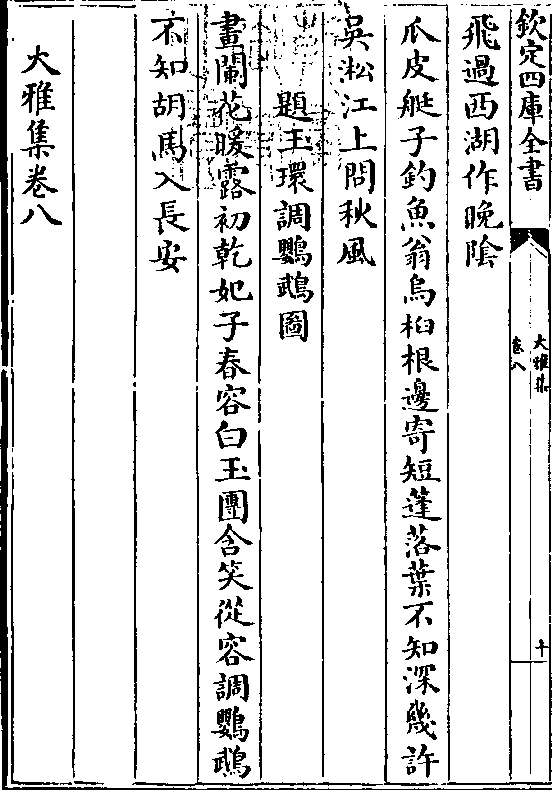 欽定四庫全書
大雅集
卷八
十
飛過西湖作晚陰
爪皮艇子釣魚翁烏桕根邊寄短蓬落葉不知深幾許
吳淞江上問秋風
題玉環調鸚鵡圖
畫闌花暖露初乾妃子春容白玉團含笑從容調鸚鵡
不知胡馬入長安
大雅集卷八